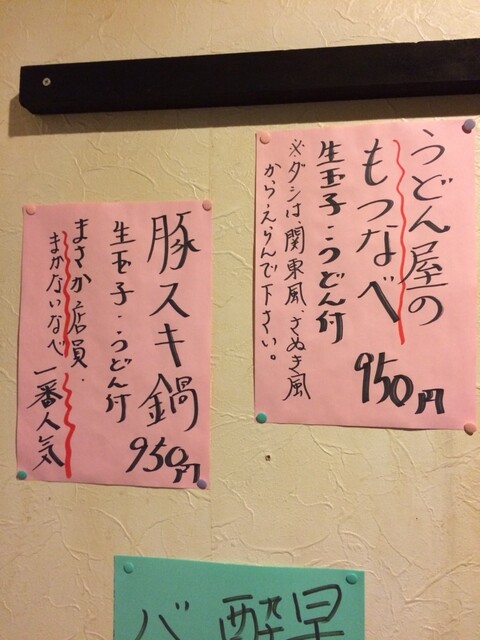 うどん屋の
もつなべ
950円
生玉子・うどん付
※ダシは、関東風、さぬき風
からえらんで下さい。
豚スキ鍋
950円
生玉子・うどん付
まさか店員.
まかないなべ
一番人気